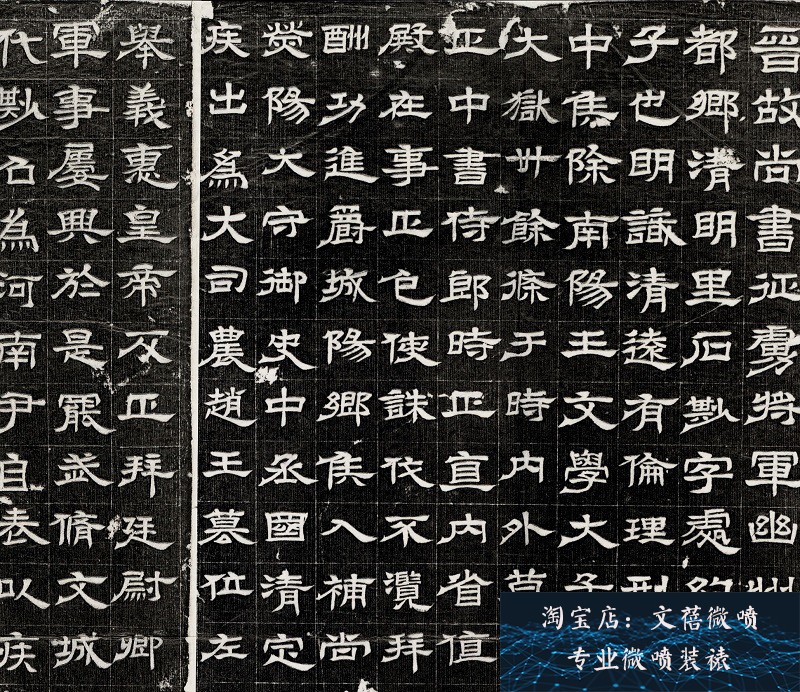 晉故尚書征虜將軍幽州
都鄉清明里石尠字處約
子也明識清遠有倫理刑
中侯除南陽王文學大子
大獄卅餘條于時內外莫
正中書侍郎時正直內省值
殿在事正色使誅伐不濫拜
酬功進爵城陽鄉侯入補尚
滎陽大守御史中丞國清定
疾出為大司農趙王篡位左
舉義惠皇帝反正拜廷尉卿
軍事屢興於是罷武脩文城
代尠為河南尹自表以疾
淘宝店：文蓓微喷
专业微喷装裱